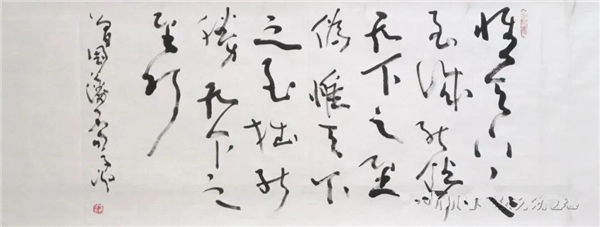 惟天下之
至诚能勝
天下之至
偽惟天下
之至拙能
勝天下之
至巧
曾國藩